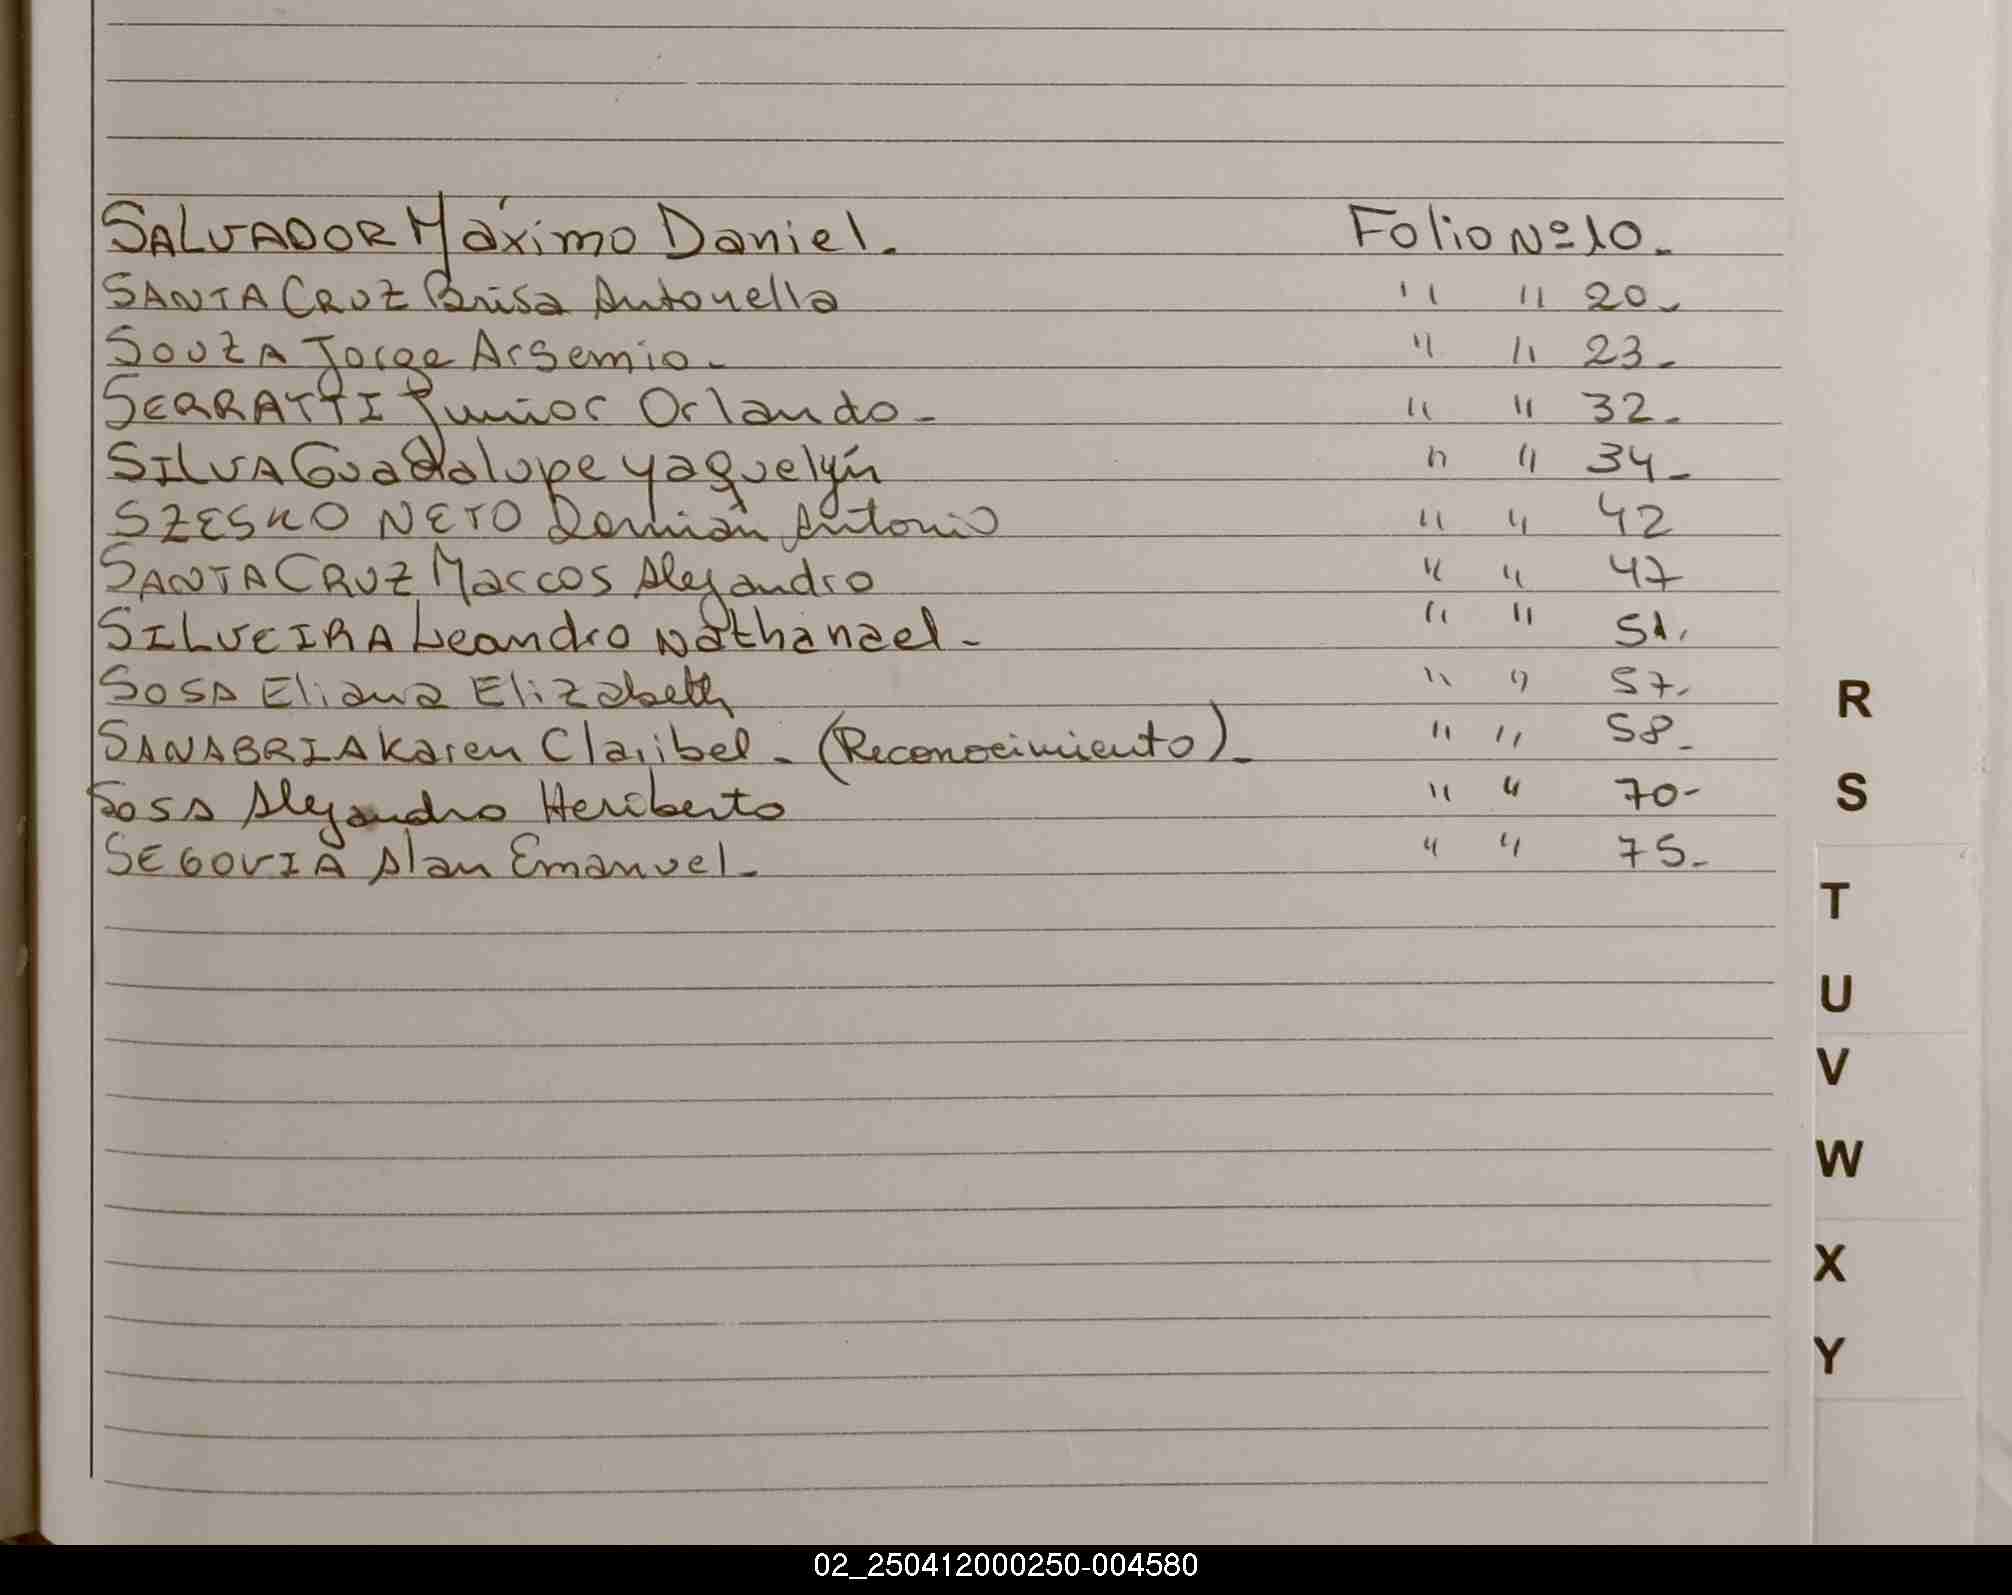 SALVADOR Máximo Daniel. Folio Nº 10.
SANTA CRUZ Brisa Antonella " " 20.
SOUZA Jorge Arsemio. " " 23.
SERRATTI Junior Orlando. " " 32.
SILVA Guadalupe yaquelyn " " 34.
SZESKO NETO Damián Antonio " " 42
SANTA CRUZ Marcos Alejandro " " 47
SILVEIRA Leandro Nathanael. " " 51.
SOSA Eliana Elizabeth " " 57.
SANABRIA Karen Claribel. (Reconocimiento). " " 58.
SOSA Alejandro Heriberto " " 70-
SEGOVIA Alan Emanuel. " " 75.
R
S
T
U
V
W
X
Y
02_250412000250-004580